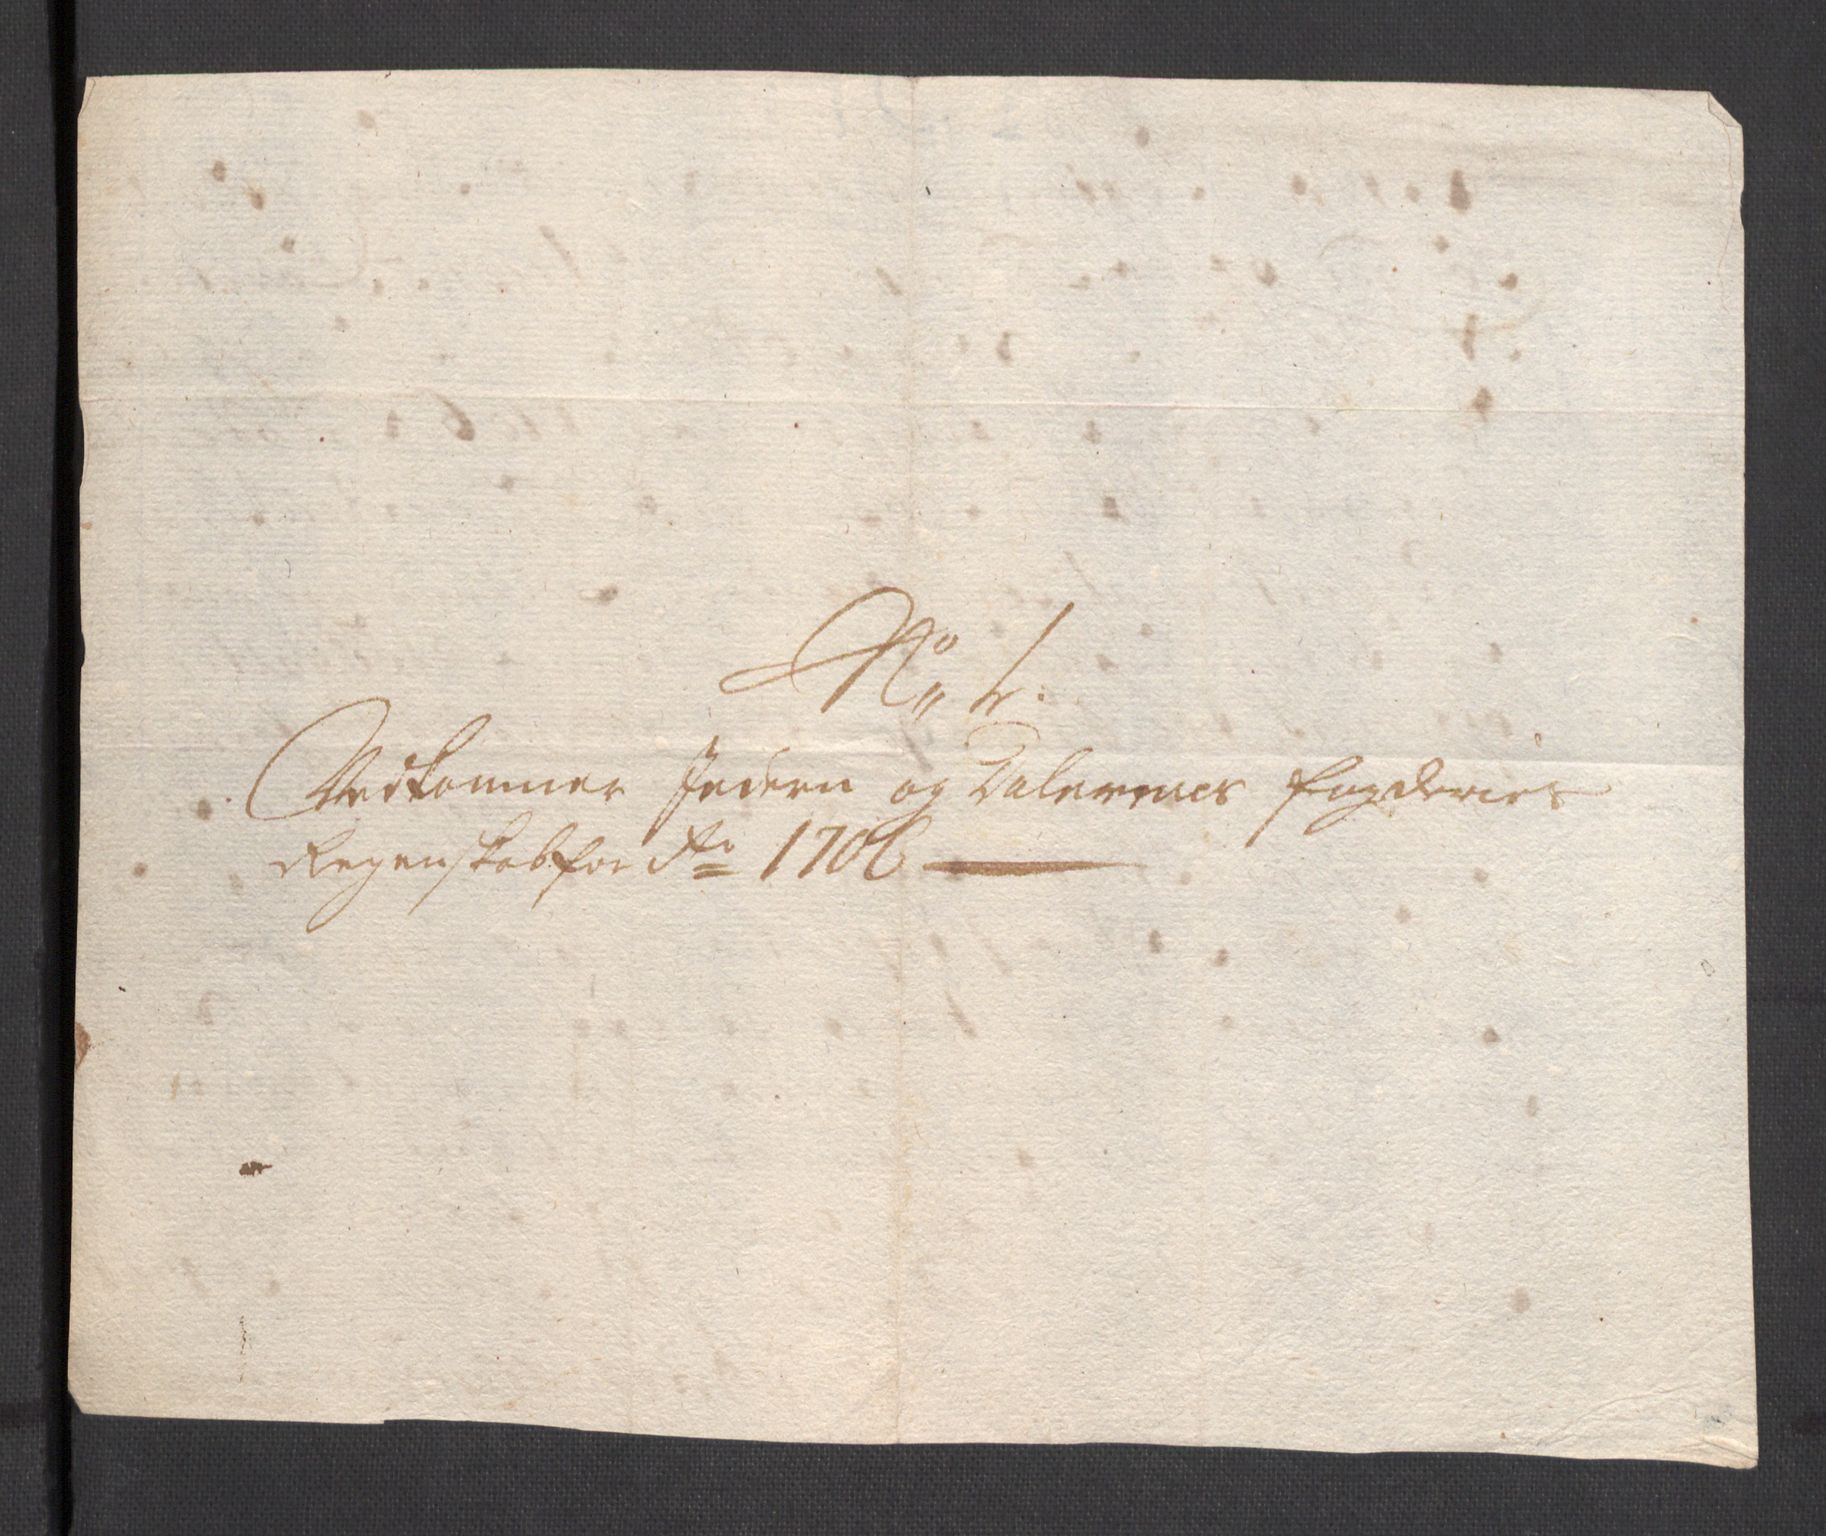 No 1.
Vedkommer Jedern og Dalernes fogderies
Regenskab for Ao 1706